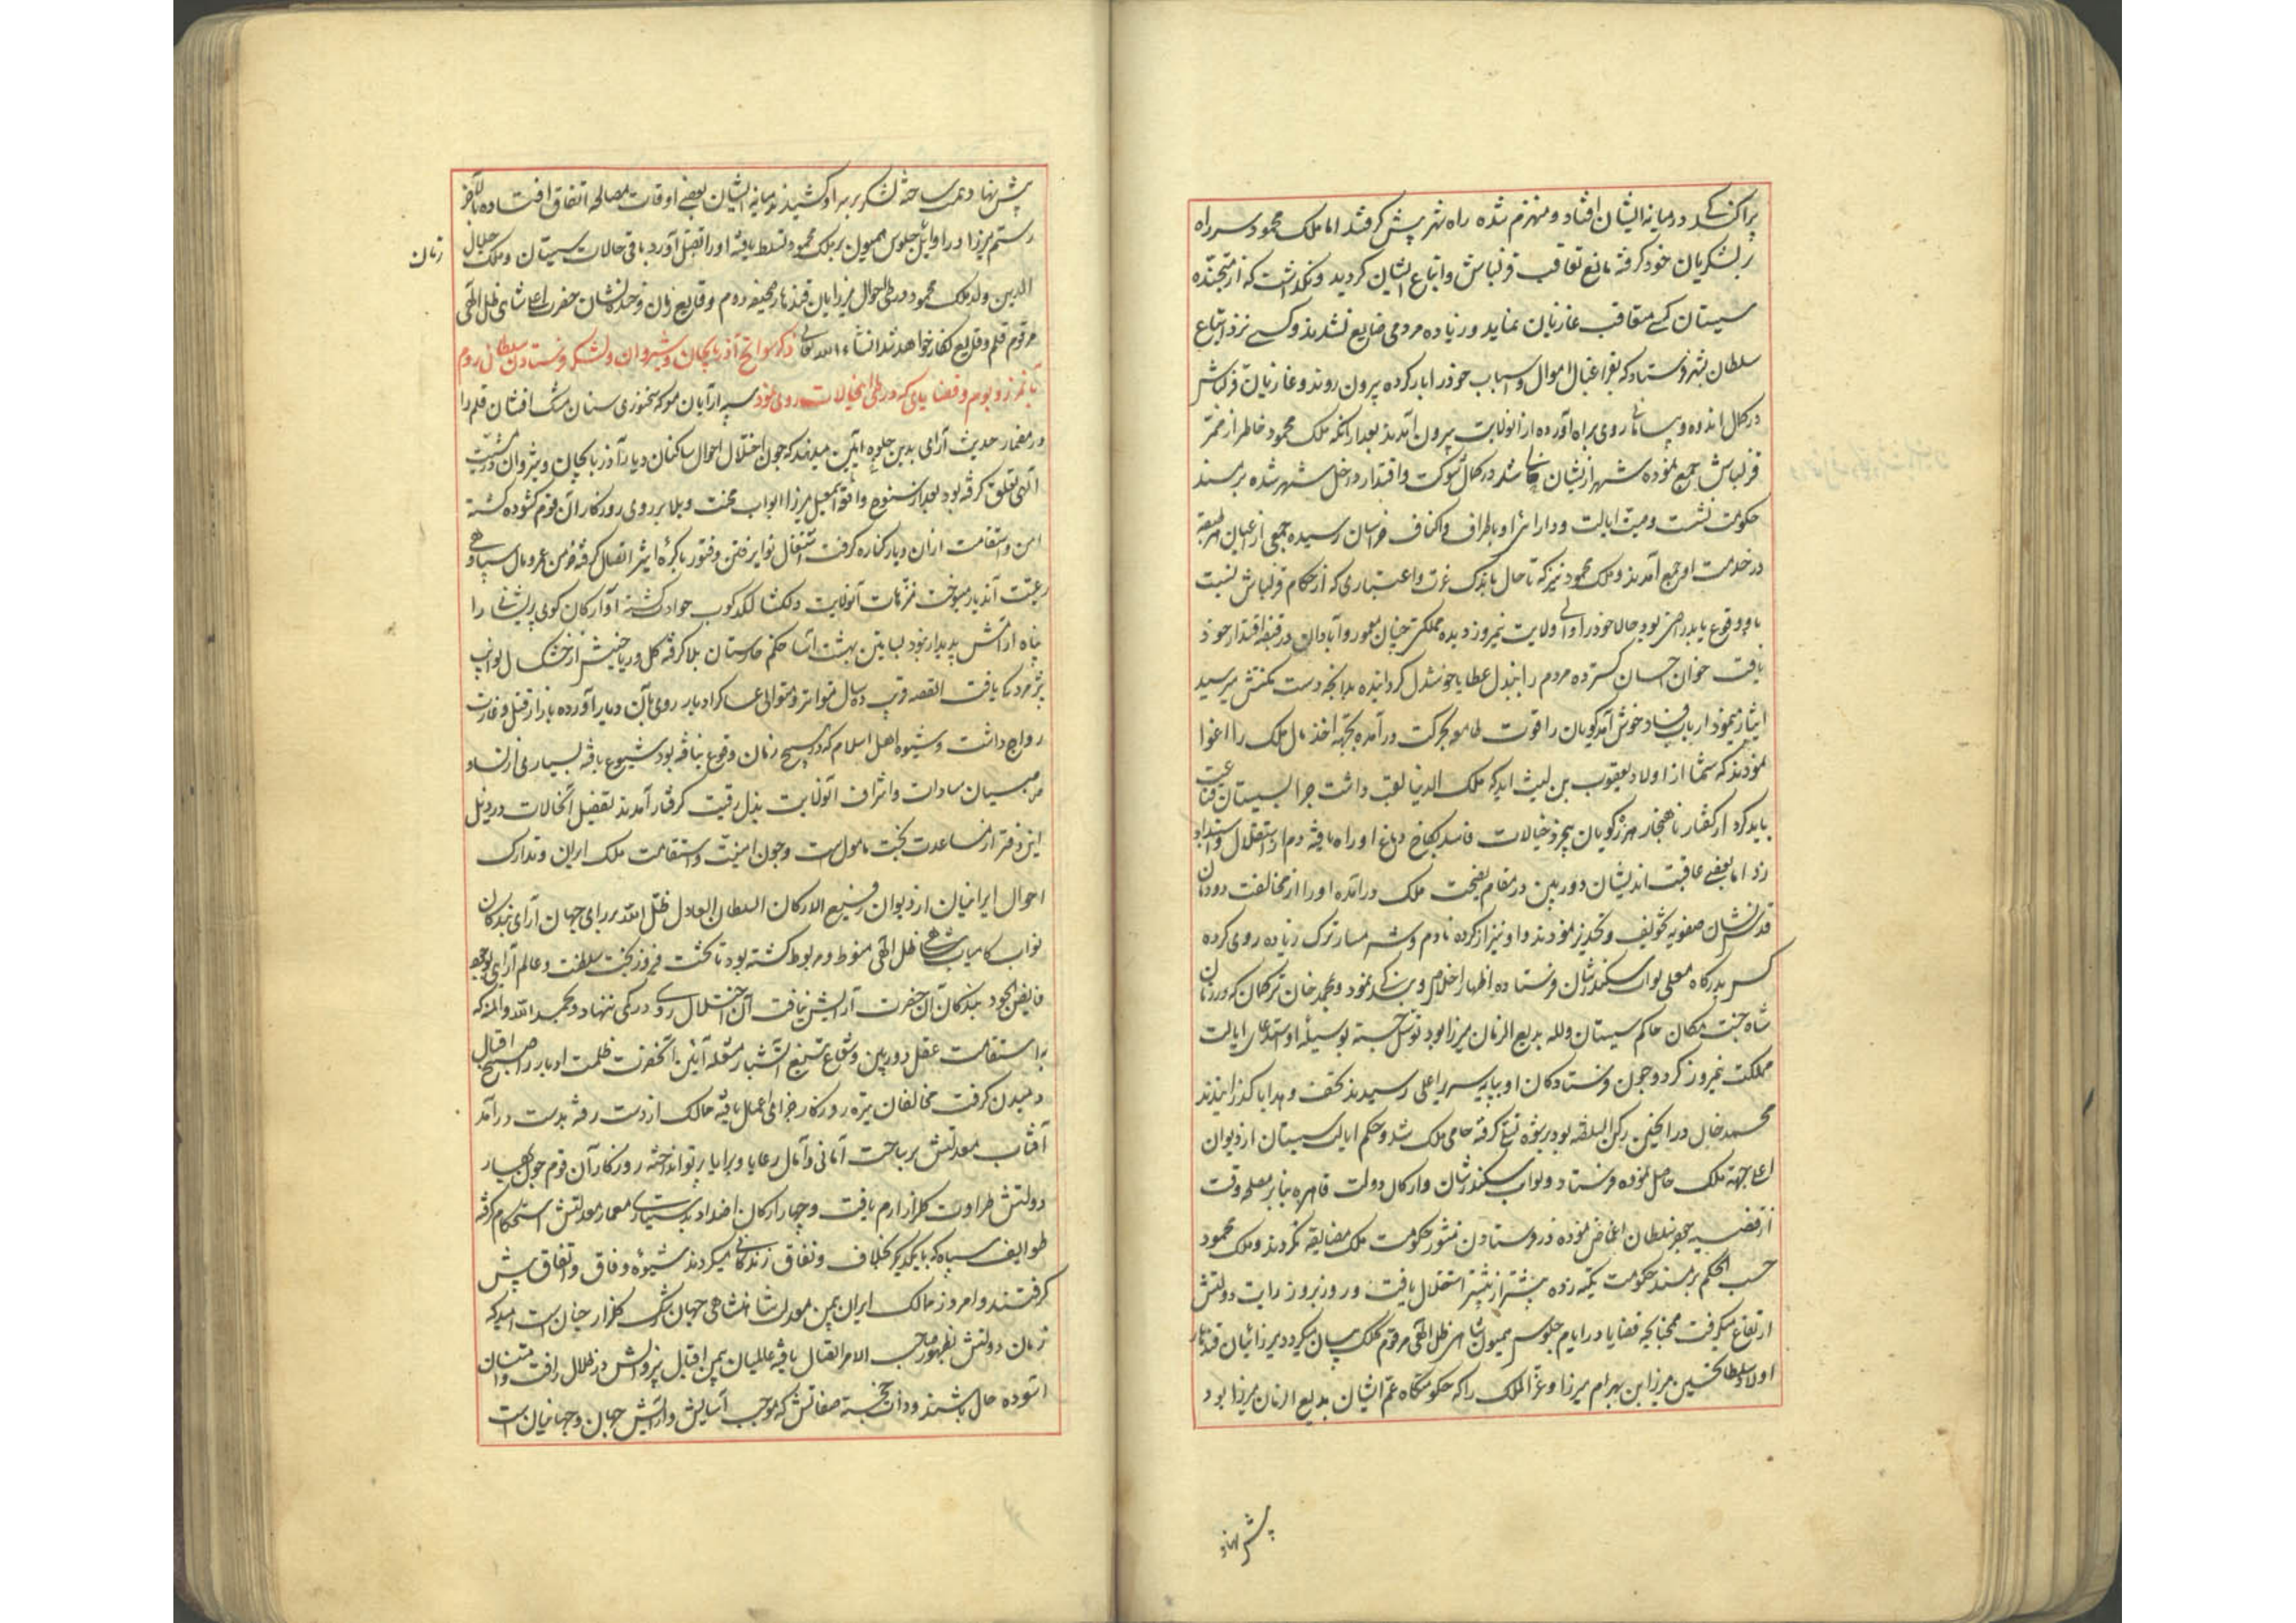 پراکندگی در میانه ایشان افتاد و منهزم شده راه شهر پیش گرفتند اما ملک محمود سر راه
بر لشکریان خود گرفته مانع تعاقب قزلباش و اتباع ایشان گردید و نگذاشت که از متجنده
سیستان کسی متعاقب غازیان نماید و زیاده مردمی ضایع نشدند و کسی نزد اتباع
سلطان بشهر فرستاد که بفراغبال اموال و اسباب خود را بار کرده بیرون روند و غازیان قزلباش
در کمال اندوه و پریشانی روی براه آورده از انولایت بیرون آمدند بعد از آنکه ملک محمود خاطر از ممر
قزلباش جمع نموده شهر از یشان خالی شد در کمال شوکت و اقتدار داخل شهر شده بر مسند
حکومت نشست وصیت ایالت و دارائی او باطراف و اکناف خراسان رسیده جمعی از اعیان هر طبقه
در خدمت او جمع آمدند و ملک محمود نیز که تا حال باندک عزت و اعتباری که از حکام قزلباش نسبت
باو وقوع یابد راضی بود حالا خود را والی ولایت نیمروز دیده مملکتی چنان معمور و آبادان در قبضه اقتدار خود
یافت خوان احسان گسترده مردم را ببذل عطایا خوشدل گردانیده بدانچه دست مکنتش میرسید
ایثار مینمود ارباب فساد خوش آمدگویان را قوت طامعه بحرکت درآمده بجهة اخذ مال ملک را اغوا
نمودند که شما از اولاد یعقوب بن لیث اید که ملک الدنیا لقب داشت چرا بسیستان قناعت
باید کرد از گفتار ناهنجار هرزه گویان بیخرد خیالات فاسد بکاخ دماغ او راه یافته دم از استقلال و استبداد
زد اما بعضی عاقبت اندیشان دوربین در مقام نصیحت ملک درآمده او را از مخالفت دودمان
قدس نشان صفویه تخویف و تحذیر نمودند و او نیز از کرده نادم و شرمسار ترک زیاده روی کرده
کس بدرگاه معلی نواب سکندرشان فرستاده اظهار اخلاص و بندگی نمود و محمد خان ترکمان که در زمان
شاه جنت مکان حاکم سیستان و لله بدیع الزمان میرزا بود توسل جسته بوسیله او استدعای ایالت
مملکت نیمروز کرد و چون فرستادگان او بپایه سریر اعلی رسیدند تحف و هدایا گذرانیدند
محمد خان در آنحین رکن السلطنه بود رشوه تبع گرفته حامی ملک شد و حکم ایالت سیستان از دیوان
اعلی جهة ملک حاصل نموده فرستاد و نواب سکندرشان و ارکان دولت قاهره بنابر مصلحه وقت
از قضیه جعفر سلطان اغماض نموده در فرستادن منشور حکومت ملک مضایقه نکردند و ملک محمود
حسب الحکم بر مسند حکومت تکیه زده بیشتر از پیشتر استقلال یافت و روز بروز رایت دولتش
ارتفاع میگرفت همچنانچه قضایا در ایام جلوس همیون شاهی ظل الهی مرقوم کلک بیان میگردد میرزائیان قندهار
اولاد سلطان حسین میرزا ابن بهرام میرزا وعزالملک را که حکومتگاه عم ایشان بدیع الزمان میرزا بود
پیش نهاد
پیش نهاد همت ساخته لشکر بر سر او کشیدند میانه ایشان بعضی اوقات مصالحه اتفاق افتاده بالاخر
رستم میرزا در اوایل جلوس همیون بر ملک محمود تسلط یافته او را بقتل آورد باقی حالات سیستان و ملک جلال
الدین ولد ملک محمود در طی احوال میرزایان قندهار صحیفه دوم وقایع زمان فرخنده نشان حضرت اعلی شاهی ظل الهی
زمان
مرقوم قلم وقایع نگار خواهد شد انشاءالله تعالی ذکر سوانح آذربایجان و شیروان و لشکر فرستادن سلطان روم
بآن مرز و بوم و قضایای که در طی انحالات روی نمود سپه آرایان معرکه سخنوری سنان مشک افشان قلم را
در مضمار حدیث آرائی بدین جلوه آیین میدهند که چون اختلال احوال ساکنان دیار آذربایجان و شیروان در مشیت
الهی تعلق گرفته بود بعد از سنوح واقعه اسمعیل میرزا ابواب محنت و بلا بر روی روزگار آن قوم گشوده گشته
امن و استقامت از ان دیار کناره گرفت اشتعال نوایر فتن و فتور با کره اثیر اتصال گرفته خرمن عمر و مال سپاهی و
رعیت آندیار میسوخت منزهات آنولایت دلگشا لگدکوب حوادث گشته آوارگان کوی پریشانی را
پناه از آتش پدیدار نبود بساتین بهشت آسا حکم خارستان بلا گرفته گل و ریاحینش از خشک سال نوایب
پژمردگی یافت القصه قریب ده سال متواتر و متوالی عساکر ادبار روی بآن دیار آورده بازار قتل و غارت
رواج داشت و شیوه اهل اسلام که در هیچ زمان وقوع نیافته بود شیوع یافته بسیاری از نساء
و صبیان سادات و اشراف آنولایت بذل رقیت گرفتار آمدند تفصیل آنحالات در ذیل
این دفتر از مساعدت بخت مامولست و چون امنیت و استقامت ملک ایران و تدارک
احوال ایرانیان از دیوان رفیع الارکان السلطان العادل ظل الله بر رای جهان آرای بندگان
نواب کامیاب شاهی ظل الهی منوط و مربوط گشته بود تا تخت فیروز بخت سلطنت و عالم آرایی بوجود
فایض الجود بندگان آن حضرت آرایش نیافت آن اختلال روی در کمی ننهاد و بحمد الله والمنه که
به استقامت عقل دوربین و شعاع تیغ آتشبار شعله آیین آنحضرت ظلمت ادبار را صبح اقبال
دمیدن گرفت مخالفان تیره روزگار جزای اعمال یافته ممالک از دست رفته بدست درآمد
آفتاب معدلتش بر ساحت آمانی و آمال رعایا و برایا پرتو انداخته روزگار آن قوم چون بهار
دولتش طراوت گلزار ارم یافت و چهار ارکان اضداد بدستیاری معمار معدلتش استحکام گرفته
طوایف سپاه که با یکدیگر بخلاف و نفاق زندگانی میکردند شیوه وفاق و اتفاق پیش
گرفتند و امروز ممالک ایران بیمن معدلت شاهنشاهی جهان رشک گلزار جنان است امید که
زمان دولتش بظهور صاحب الامر اتصال یافته عالمیان بیمن اقبال بیزوالش در ظلال رافت و امتنان
آسوده حال باشند و ذات خجسته صفاتش که موجب آسایش و آرایش جهان و جهانیان است